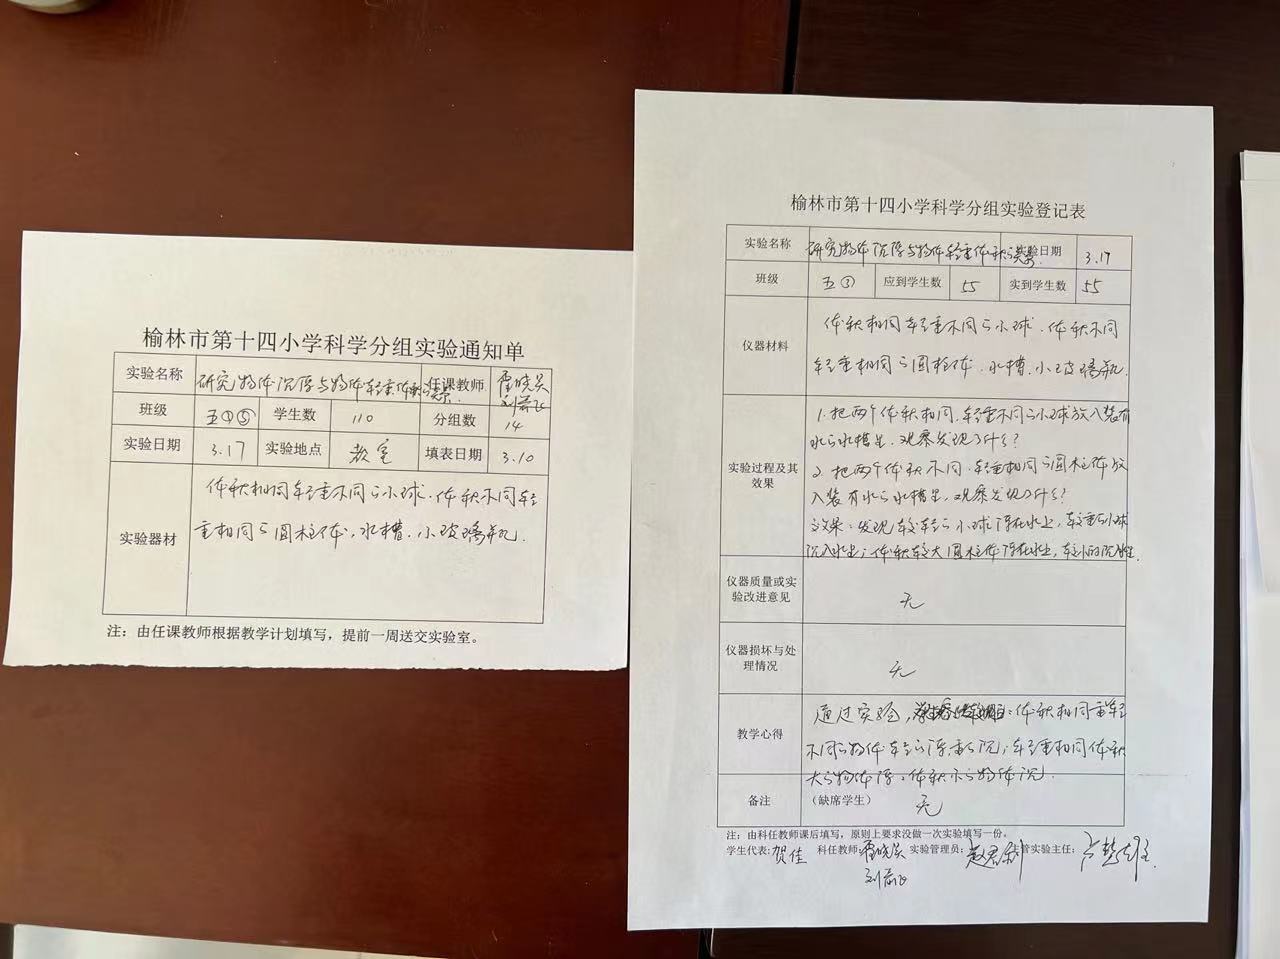 榆林市第十四小学科学分组实验通知单
实验名称 研究物体沉浮与物体轻重体积的关系 任课教师 霍晓昊
刘前飞
班级 五④⑤ 学生数 110 分组数 14
实验日期 3.17 实验地点 教室 填表日期 3.10
实验器材
体积相同轻重不同的小球、体积不同轻
重相同的圆柱体,水槽、小玻璃瓶.
注:由任课教师根据教学计划填写,提前一周送交实验室。
榆林市第十四小学科学分组实验登记表
实验名称 研究物体沉浮与物体轻重体积的关系 实验日期 3.17
班级 五③ 应到学生数 55 实到学生数 55
仪器材料
体积相同轻重不同的小球、体积不同
轻重相同的圆柱体、水槽、小玻璃瓶.
实验过程及其
效果
1.把两个体积相同、轻重不同的小球放入装有
水的水槽里,观察发现了什么?
2.把两个体积不同、轻重相同的圆柱体放
入装有水的水槽里,观察发现了什么?
效果:发现较轻的小球浮在水上,较重的小球
沉入水里;体积较大圆柱体浮在水上,较小的沉入水里.
仪器质量或实
验改进意见
无
仪器损坏与处
理情况
无
教学心得
通过实验,:体积相同重轻
不同的物体轻的浮重的沉;轻重相同体积
大的物体浮,体积小的物体沉.
备注 (缺席学生) 无
注:由科任教师课后填写,原则上要求没做一次实验填写一份。
学生代表:贺佳 科任教师:霍晓昊 实验管理员: 主管实验主任:
刘前飞